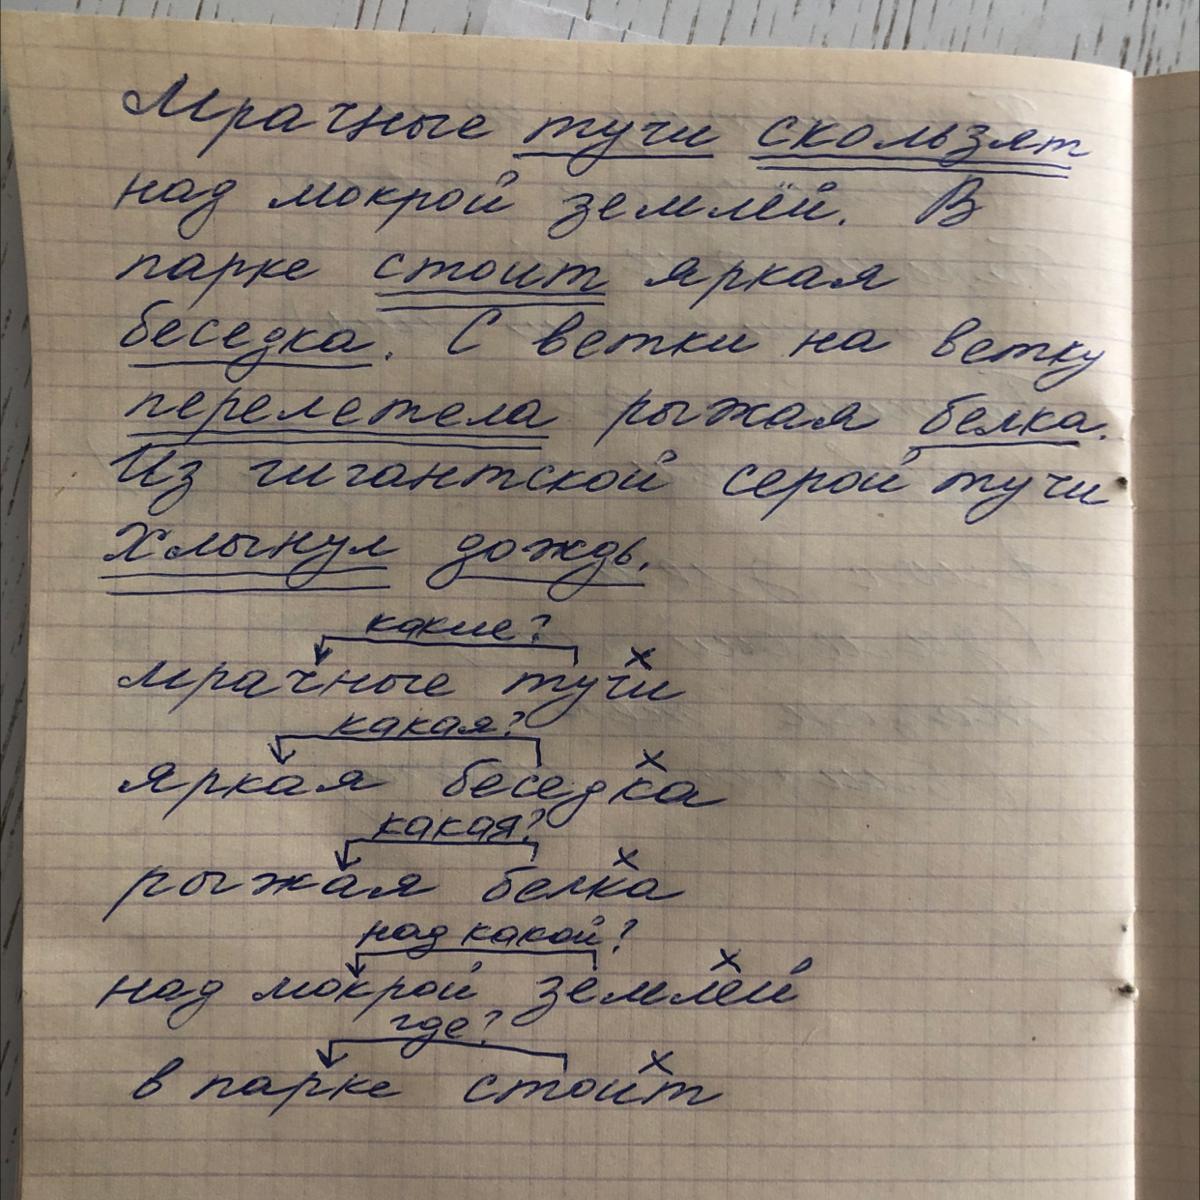 Мрачные тучи скользят
над мокрой землёй. В
парке стоит яркая
беседка. С ветки на ветку
перелетела рыжая белка.
Из гигантской серой тучи
хлынул дождь.
какие?
мрачные тучи
какая?
яркая беседка
какая?
рыжая белка
над какой?
над мокрой землёй
где?
в парке стоит